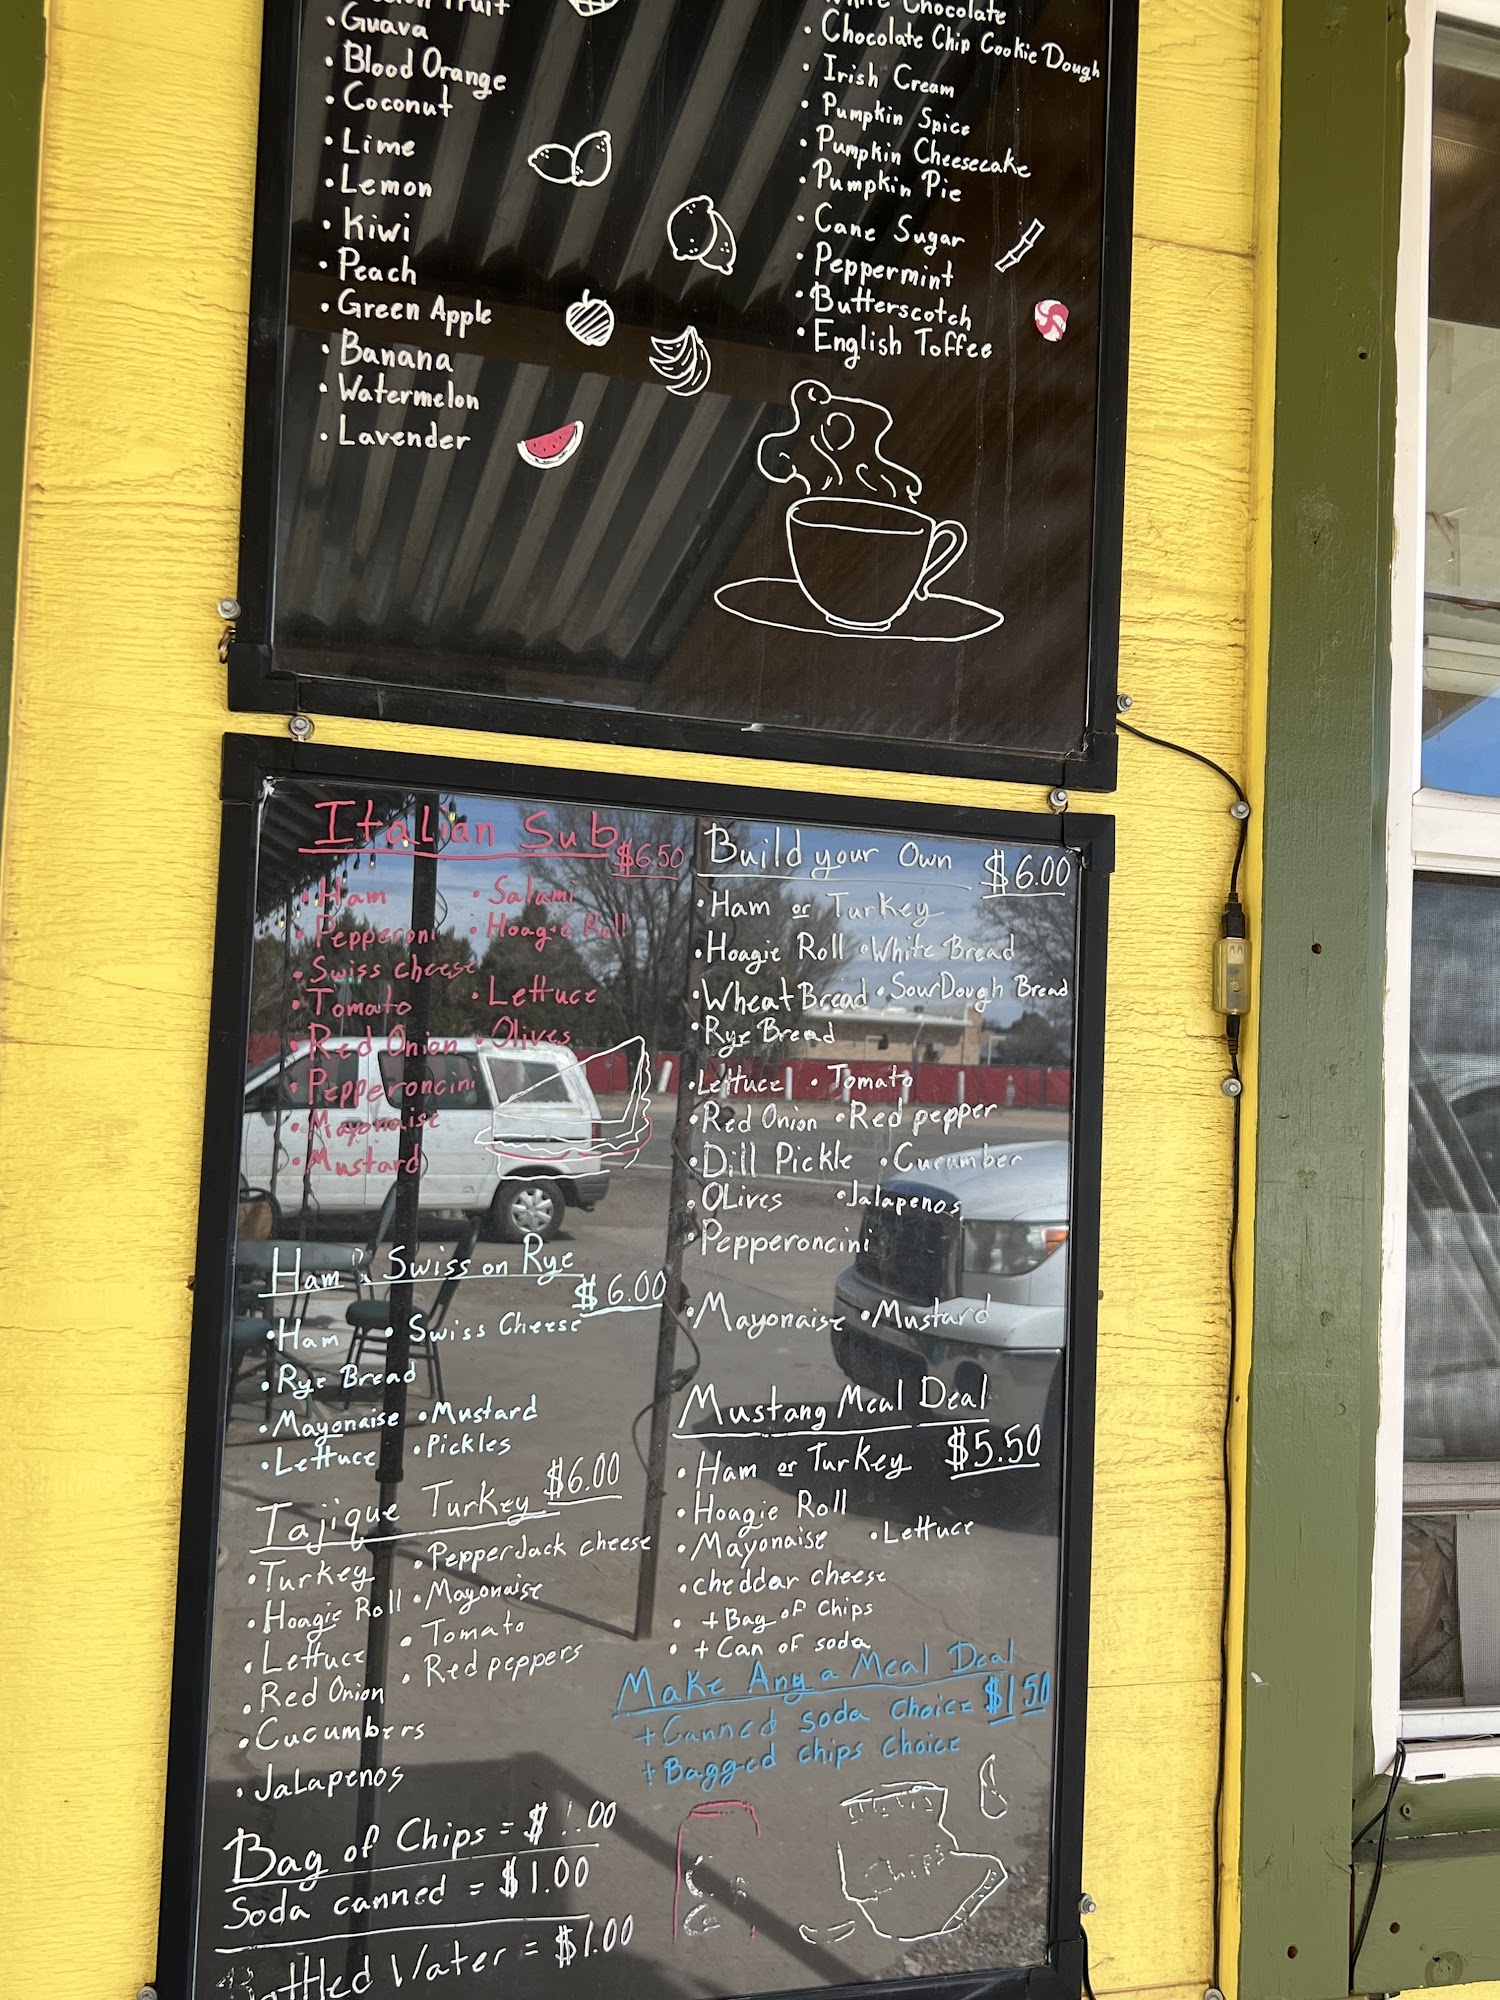 Fruit
• Guava
• Blood Orange
• Coconut
• Lime
• Lemon
• Kiwi
• Peach
• Green Apple
• Banana
• Watermelon
• Lavender
White Chocolate
• Chocolate Chip Cookie Dough
• Irish Cream
• Pumpkin Spice
• Pumpkin Cheesecake
• Pumpkin Pie
• Cane Sugar
• Peppermint
• Butterscotch
• English Toffee
Italian Sub $6.50
• Ham • Salami
• Pepperoni • Hoagie Roll
• Swiss cheese
• Tomato • Lettuce
• Red Onion • Olives
• Pepperoncini
• Mayonaise
• Mustard
Ham & Swiss on Rye
$6.00
• Ham • Swiss Cheese
• Rye Bread
• Mayonaise • Mustard
• Lettuce • Pickles
Tajique Turkey $6.00
• Turkey • Pepper Jack cheese
• Hoagie Roll • Mayonaise
• Lettuce • Tomato
• Red Onion • Red peppers
• Cucumbers
• Jalapenos
Bag of Chips = $1.00
Soda canned = $1.00
Bottled Water = $1.00
Build your Own $6.00
• Ham or Turkey
• Hoagie Roll • White Bread
• Wheat Bread • SourDough Bread
• Rye Bread
• Lettuce • Tomato
• Red Onion • Red pepper
• Dill Pickle • Cucumber
• Olives • Jalapenos
• Pepperoncini
• Mayonaise • Mustard
Mustang Meal Deal
• Ham or Turkey $5.50
• Hoagie Roll
• Mayonaise • Lettuce
• cheddar cheese
• + Bag of Chips
• + Can of soda
Make Any a Meal Deal
+ Canned soda choice $1.50
+ Bagged chips choice
Chips